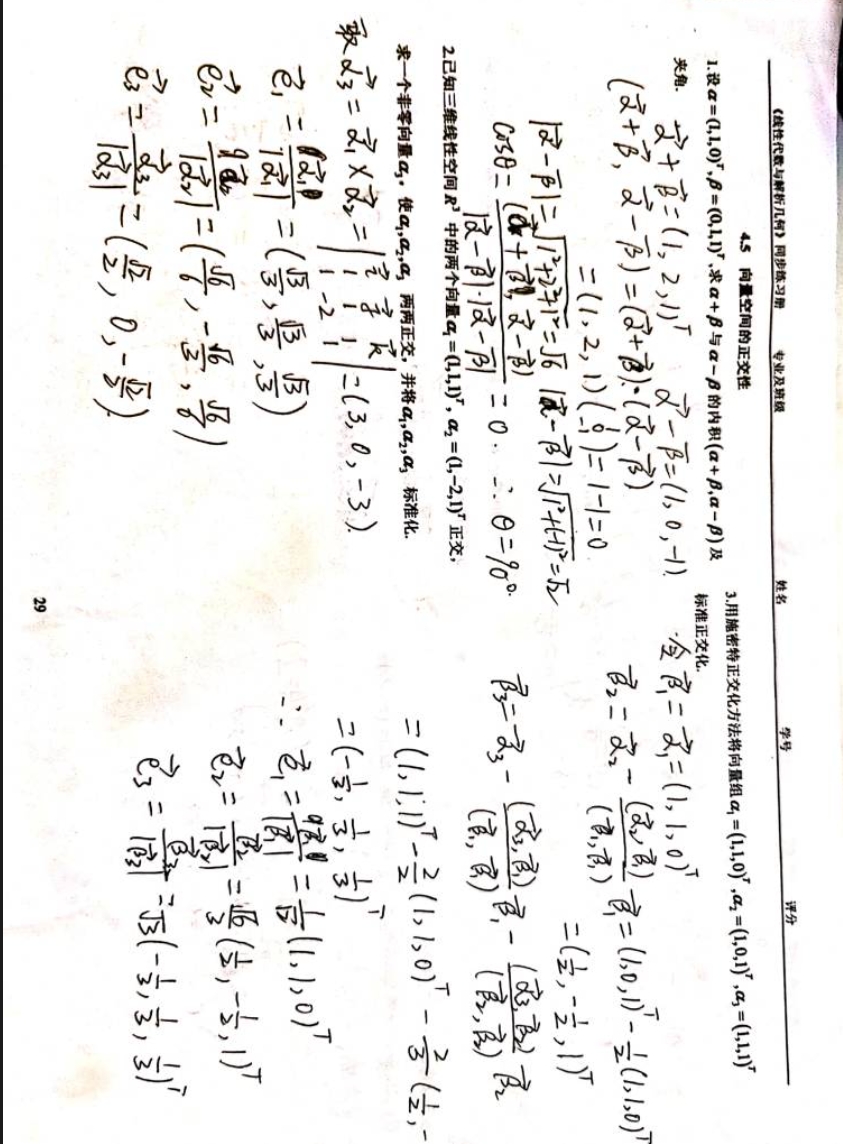 《线性代数与解析几何》同步练习册 专业及班级 姓名 学号 评分
4.5 向量空间的正交性
1.设α=(1,1,0)ᵀ,β=(0,1,1)ᵀ,求α+β与α−β的内积(α+β,α−β)及
夹角.
α⃗+β⃗=(1,2,1)ᵀ α⃗−β⃗=(1,0,−1).
(α⃗+β⃗, α⃗−β⃗)=(α⃗+β⃗)·(α⃗−β⃗)
=(1,2,1)(1 0 −1)=1−1=0
|α⃗−β⃗|=√(1²+2²+1²)=√6 |α⃗−β⃗|=√(1²+(−1)²)=√2
cosθ=(α⃗+β⃗, α⃗−β⃗)/(|α⃗−β⃗|·|α⃗−β⃗|)=0. ∴θ=90°.
2.已知三维线性空间R³中的两个向量α₁=(1,1,1)ᵀ, α₂=(1,−2,1)ᵀ正交,
求一个非零向量α₃, 使α₁,α₂,α₃两两正交, 并将α₁,α₂,α₃标准化.
取α⃗₃=α⃗₁×α⃗₂=|i⃗ j⃗ k⃗; 1 1 1; 1 −2 1|=(3,0,−3).
e⃗₁=α⃗₁/|α⃗₁|=(√3/3, √3/3, √3/3)
e⃗₂=α⃗₂/|α⃗₂|=(√6/6, −√6/3, √6/6)
e⃗₃=α⃗₃/|α⃗₃|=(√2/2, 0, −√2/2)
3.用施密特正交化方法将向量组α₁=(1,1,0)ᵀ,α₂=(1,0,1)ᵀ,α₃=(1,1,1)ᵀ
标准正交化.
令β⃗₁=α⃗₁=(1,1,0)ᵀ
β⃗₂=α⃗₂−(α⃗₂,β⃗₁)/(β⃗₁,β⃗₁) β⃗₁=(1,0,1)ᵀ−½(1,1,0)ᵀ
=(½,−½,1)ᵀ
β⃗₃=α⃗₃−(α⃗₃,β⃗₁)/(β⃗₁,β⃗₁) β⃗₁−(α⃗₃,β⃗₂)/(β⃗₂,β⃗₂) β⃗₂
=(1,1,1)ᵀ−2/2(1,1,0)ᵀ−2/3(½,−
=(−⅓,⅓,⅓)ᵀ
∴e⃗₁=β⃗₁/|β⃗₁|=1/√2(1,1,0)ᵀ
e⃗₂=β⃗₂/|β⃗₂|=√6/3(½,−½,1)ᵀ
e⃗₃=β⃗₃/|β⃗₃|=√3(−⅓,⅓,⅓)ᵀ
29